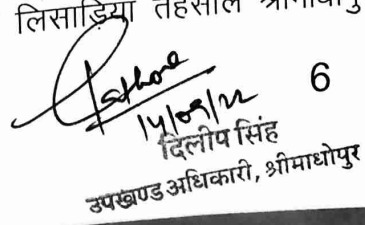 लिसाड़िया तहसील
Rathore
14/09/22
6
दिलीप सिंह
उपखण्ड अधिकारी, श्रीमाधोपुर